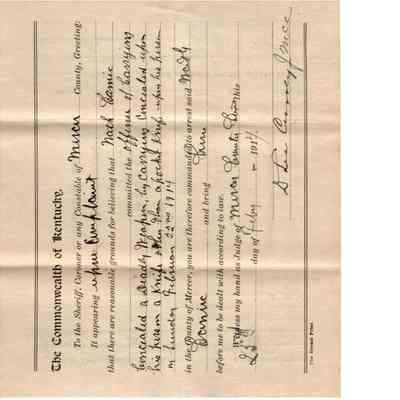 The Commonwealth of Kentucky,
To the Sheriff, Coroner or any Constable of Mercer County, Greeting:
It appearing upon Complaint
that there are reasonable grounds for believing that
committed the offense of Carrying
Concealed a Deadly Weapon, by Carrying Concealed upon
his person a Knife other than a pocket knife upon his person
on Sunday February 22nd 1914
in the County of Mercer, you are therefore commanded to arrest said
and bring him
before me to be dealt with according to law.
Witness my hand as Judge of Mercer County this
day of Feby 191